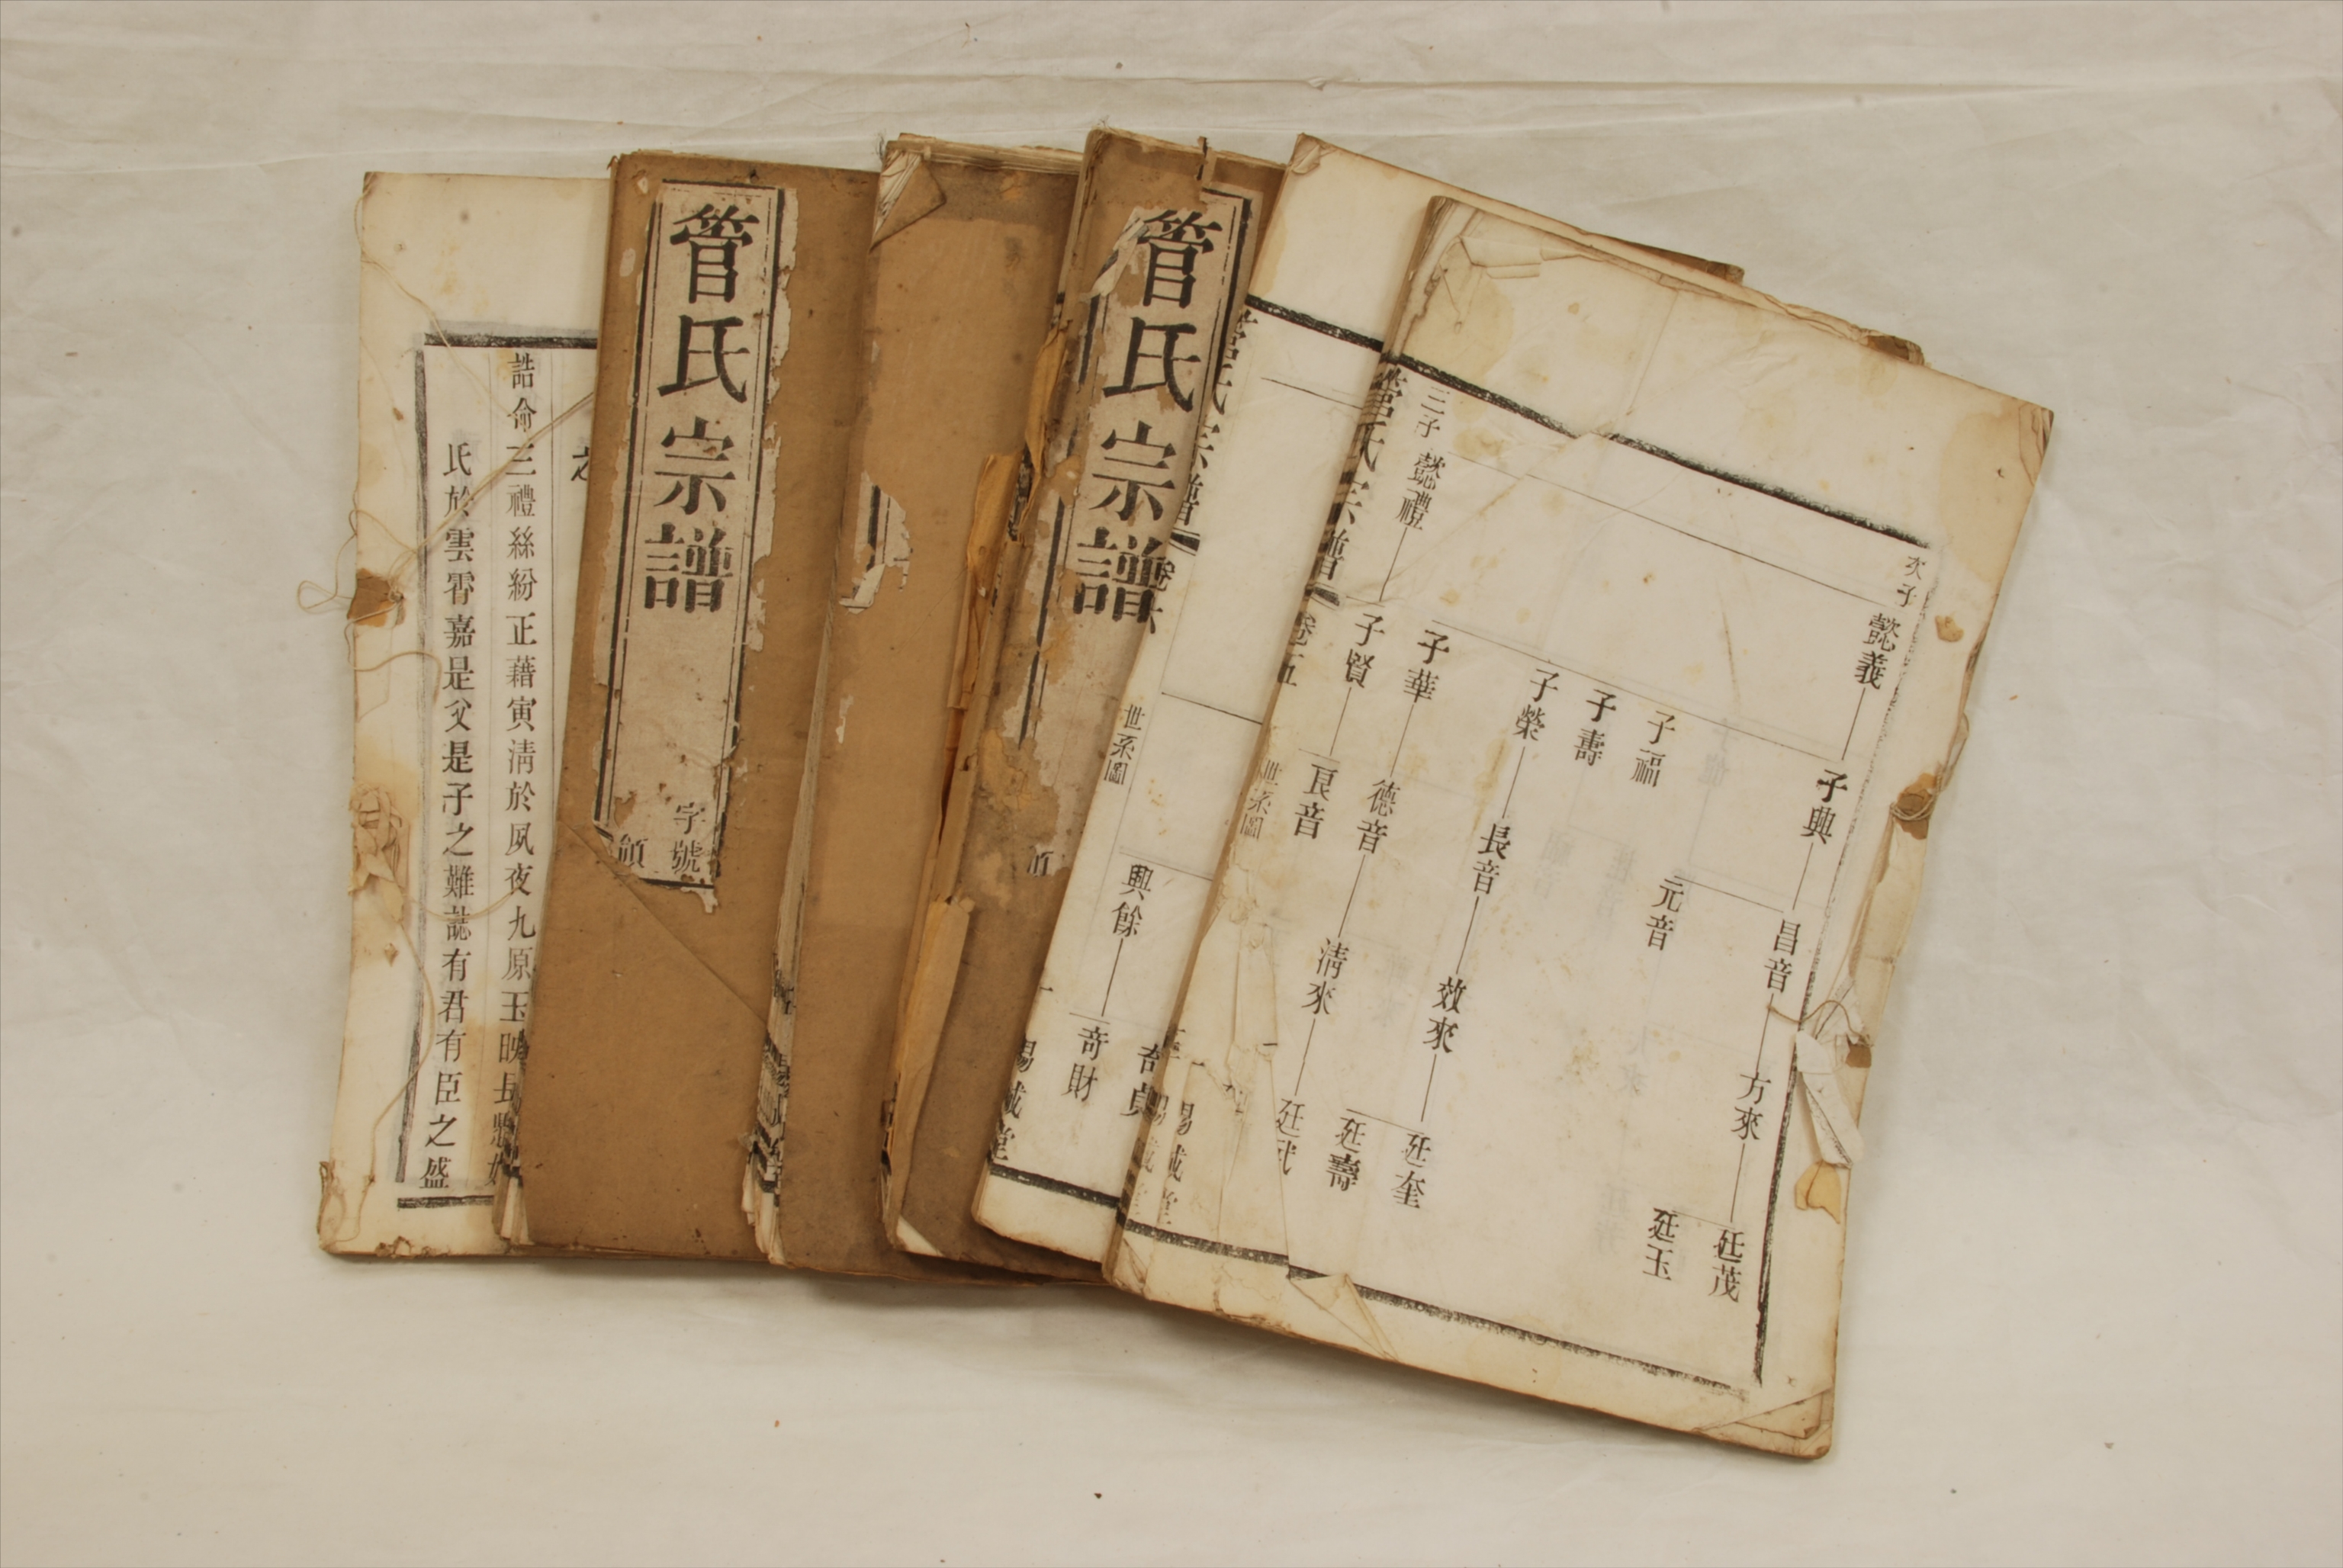 誥侖三禮絲紛正藉寅清於夙夜九原玉映長
氏於雲霄嘉是父是子之難誌有君有臣之盛
管氏宗譜
字號
領
管氏宗譜
世系圖
興餘
奇財
奇貞
錫
誠
堂
次子
懿義
子興
昌音
方來
廷茂
廷玉
元音
子福
子壽
子榮
長音
效來
廷奎
廷壽
子華
德音
清來
廷武
三子
懿禮
子賢
良音
管氏宗譜
卷五
世系圖